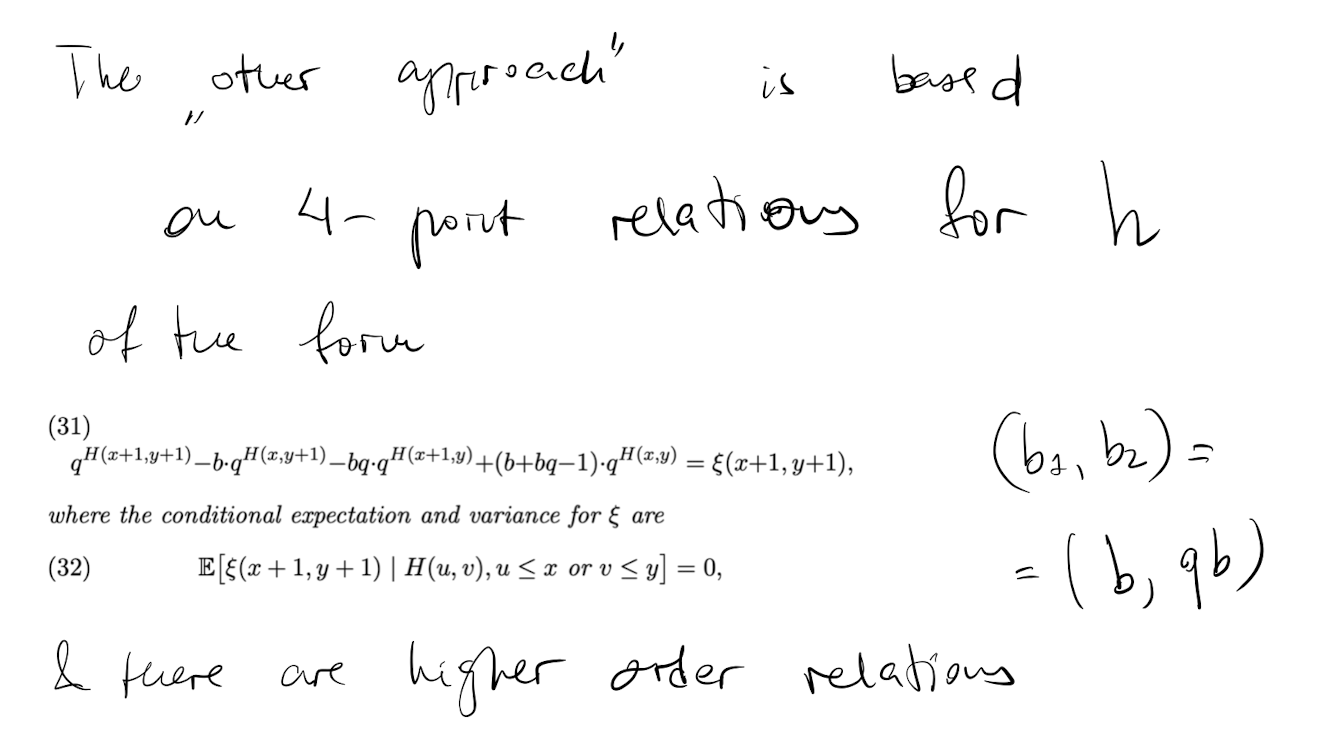 The „other approach" is based
on 4-point relations for h
of the form
(31)
q^{H(x+1,y+1)}−b·q^{H(x,y+1)}−bq·q^{H(x+1,y)}+(b+bq−1)·q^{H(x,y)} = ξ(x+1,y+1),
(b₁, b₂) =
where the conditional expectation and variance for ξ are
(32) 𝔼[ξ(x + 1, y + 1) | H(u, v), u ≤ x or v ≤ y] = 0,
= (b, qb)
& there are higher order relations